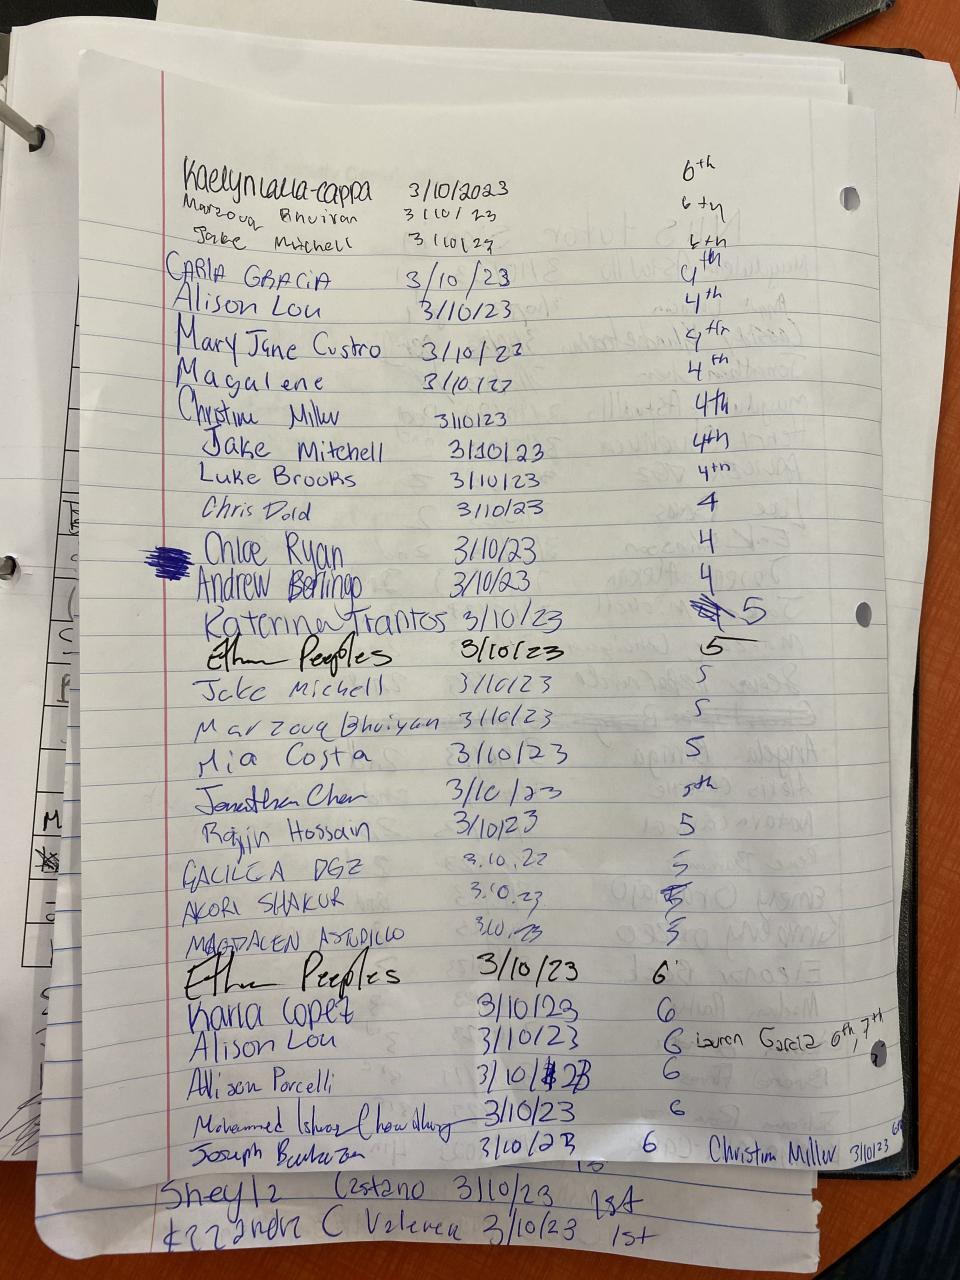 Kaelyn Lalla-Cappa 3/10/2023 6th
Marzouq Bhuiyan 3/10/23 6th
Jake Mitchell 3/10/23 6th
CARLA GRACIA 3/10/23 4th
Alison Lou 3/10/23 4th
Mary Jane Custro 3/10/23 4th
Magalene 3/10/23 4th
Christina Miller 3/10/23 4th
Jake Mitchell 3/10/23 4th
Luke Brooks 3/10/23 4th
Chris Dold 3/10/23 4
Chloe Ryan 3/10/23 4
Andrew Berlingo 3/10/23 4
Katerina Frantos 3/10/23 5
Ethan Peeples 3/10/23 5
Jake Michell 3/10/23 5
Marzouq Bhuiyan 3/10/23 5
Mia Costa 3/10/23 5
Jonathan Chen 3/10/23 5th
Rajin Hossain 3/10/23 5
GALILEA DGZ 3.10.22 5
AKORI SHAKUR 3.10.23 5
MAGDALEN ASTUDILLO 3.10.23 5
Ethan Peeples 3/10/23 6
Karla Lopez 3/10/23 6
Alison Lou 3/10/23 6 Lauren Garcia 6th, 7th
Allison Porcelli 3/10/23 6
Mohammed Chowdhury 3/10/23 6
Joseph 3/10/23 6 Christina Miller 3/10/23 6th
Sheyla Castano 3/10/23 1st
C Valencia 3/10/23 1st